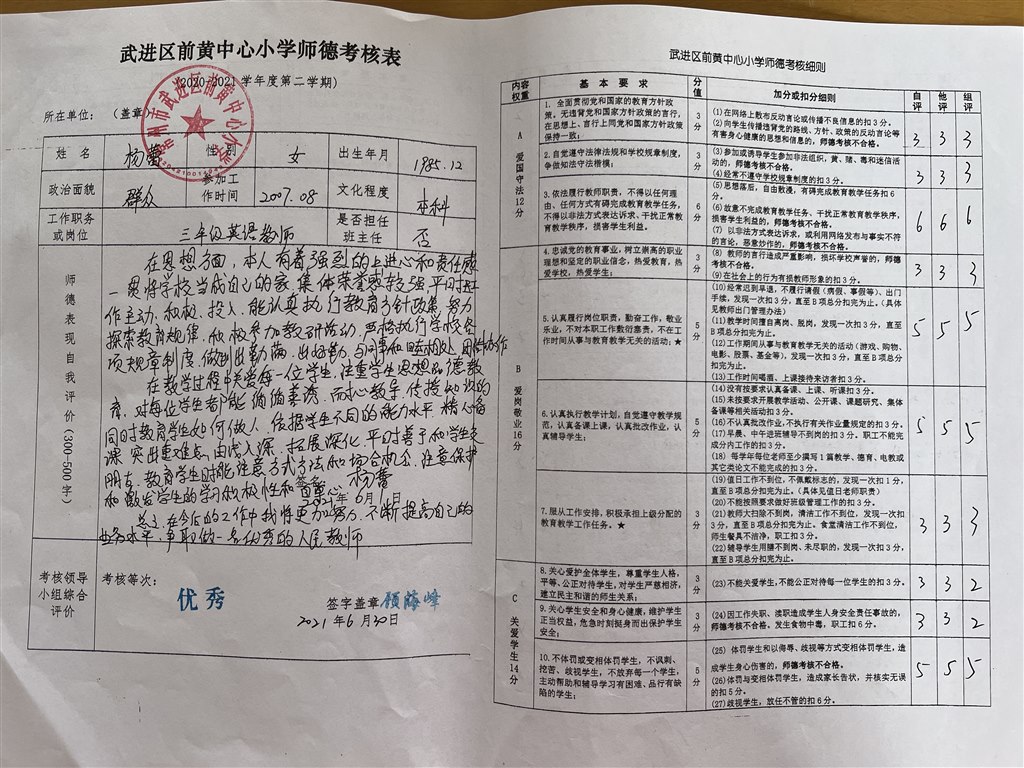 武进区前黄中心小学师德考核表
(2020-2021学年度第二学期)
所在单位： (盖章)
姓 名 杨蕾 性 别 女 出生年月 1985.12
政治面貌 群众 参加工作时间 2007.08 文化程度 本科
工作职务或岗位 三年级英语教师 是否担任班主任 否
师德表现自我评价(300-500字)
在思想方面，本人有着强烈的上进心和责任感
一贯将学校当成自己的家，集体荣誉感较强，平时工
作主动、积极、投入，能认真执行教育方针政策，努力
探索教育规律，积极参加教研活动，严格执行学校各
项规章制度，做到出勤满、出好勤，与同事和睦相处，团结协作
在教学过程中关爱每一位学生，注重学生思想品德教
育，对每位学生都能循循善诱，而耐心教导，传授知识的
同时教育学生如何做人，依据学生不同的能力水平精心备
课，突出重难点，由浅入深，拓展深化，平时善于和学生交
朋友，教育学生时能注意方式方法和场合机会，注意保护
和激发学生的学习积极性和自尊心
签名 杨蕾
2021年6月1日
总之，在今后的工作中我将更加努力，不断提高自己的
业务水平，争取做一名优秀的人民教师
考核领导小组综合评价
考核等次：
优秀
签字盖章 顾海峰
2021年6月30日
武进区前黄中心小学师德考核细则
内容权重 基 本 要 求 分值 加分或扣分细则 自评 他评 组评
A 爱国守法12分
1. 全面贯彻党和国家的教育方针政策。无违背党和国家方针政策的言行，在思想上、言行上同党和国家方针政策保持一致； 3分
(1)在网络上散布反动言论或传播不良信息的扣3分。
(2)向学生传播违背党的路线、方针、政策的反动言论等有害身心健康的思想和信息的，师德考核不合格。
3 3 3
2. 自觉遵守法律法规和学校规章制度，争做知法守法楷模； 3分
(3)参加或诱导学生参加非法组织，黄、赌、毒和迷信活动的，师德考核不合格。
(4)经常不遵守学校规章制度的扣3分。
3 3 3
3. 依法履行教师职责，不得以任何理由、任何方式有碍完成教育教学任务，不得以非法方式表达诉求、干扰正常教育教学秩序、损害学生利益。 6分
(5)思想落后，自由散漫，有碍完成教育教学任务扣6分。
(6)故意不完成教育教学任务、干扰正常教育教学秩序，损害学生利益的，师德考核不合格。
(7) 以非法方式表达诉求，或利用网络发布与事实不符的言论，恶意炒作的，师德考核不合格。
6 6 6
B 爱岗敬业16分
4. 忠诚党的教育事业，树立崇高的职业理想和坚定的职业信念，热爱教育，热爱学校，热爱学生； 3分
(8) 教师的言行造成严重影响，损坏学校声誉的，师德考核不合格。
(9)在社会上的行为有损教师形象的扣3分。
3 3 3
5. 认真履行岗位职责，勤奋工作，敬业乐业，不对本职工作敷衍塞责，不在工作时间从事与教育教学无关的活动；★ 5分
(10)经常迟到早退，不履行请假（病假、事假等）、出门手续，发现一次扣3分，直至B项总分扣完为止。（具体见教师出门管理办法）
(11)教学时间擅自离岗、脱岗，发现一次扣3分，直至B项总分扣完为止。
(12)工作期间从事与教育教学无关的活动（游戏、购物、电影、股票、基金等），发现一次扣3分，直至B项总分扣完为止。
(13)工作时间喝酒、上课接待来访者扣3分。
5 5 5
6. 认真执行教学计划，自觉遵守教学规范，认真备课上课，认真批改作业，认真辅导学生； 5分
(14)没有按要求认真备课、上课、听课扣3分。
(15)未按要求开展教学活动、公开课、课题研究、集体备课等相关活动扣3分。
(16)不认真批改作业，不执行有关作业量规定的扣3分。
(17)早晨、中午进班辅导不到岗的扣3分。职工不能完成分内工作的扣3分。
(18) 每学年每位老师至少撰写1篇教学、德育、电教或其它类论文不能完成的扣3分。
5 5 5
7. 服从工作安排，积极承担上级分配的教育教学工作任务。★ 3分
(19)值日工作不到位，不佩戴标志的，发现一次扣1分，直至B项总分扣完为止。（具体见值日老师职责）
(20)不能按照要求做好班级管理工作的扣3分。
(21)教师大扫除不到岗，清洁工作不到位，发现一次扣3分，直至B项总分扣完为止。食堂清洁工作不到位，师生餐具不洁净，职工扣3分。
(22)辅导学生用膳不到岗、未尽职的，发现一次扣3分，直至B项总分扣完为止。
3 3 3
C 关爱学生14分
8. 关心爱护全体学生，尊重学生人格，平等、公正对待学生，对学生严慈相济，建立民主和谐的师生关系； 3分
(23)不能关爱学生，不能公正对待每一位学生的扣3分。
3 3 2
9. 关心学生安全和身心健康，维护学生正当权益，危急时刻挺身而出保护学生安全； 3分
(24)因工作失职、渎职造成学生人身安全责任事故的，师德考核不合格。发生食物中毒，职工扣6分。
3 3 2
10. 不体罚或变相体罚学生，不讽刺、挖苦、歧视学生，不放弃每一个学生，主动帮助和辅导学习有困难、品行有缺陷的学生； 5分
(25) 体罚学生和以侮辱、歧视等方式变相体罚学生，造成学生身心伤害的，师德考核不合格。
(26)体罚与变相体罚学生，造成家长告状，并核实无误的扣5分。
(27)歧视学生，放任不管的扣6分。
5 5 5